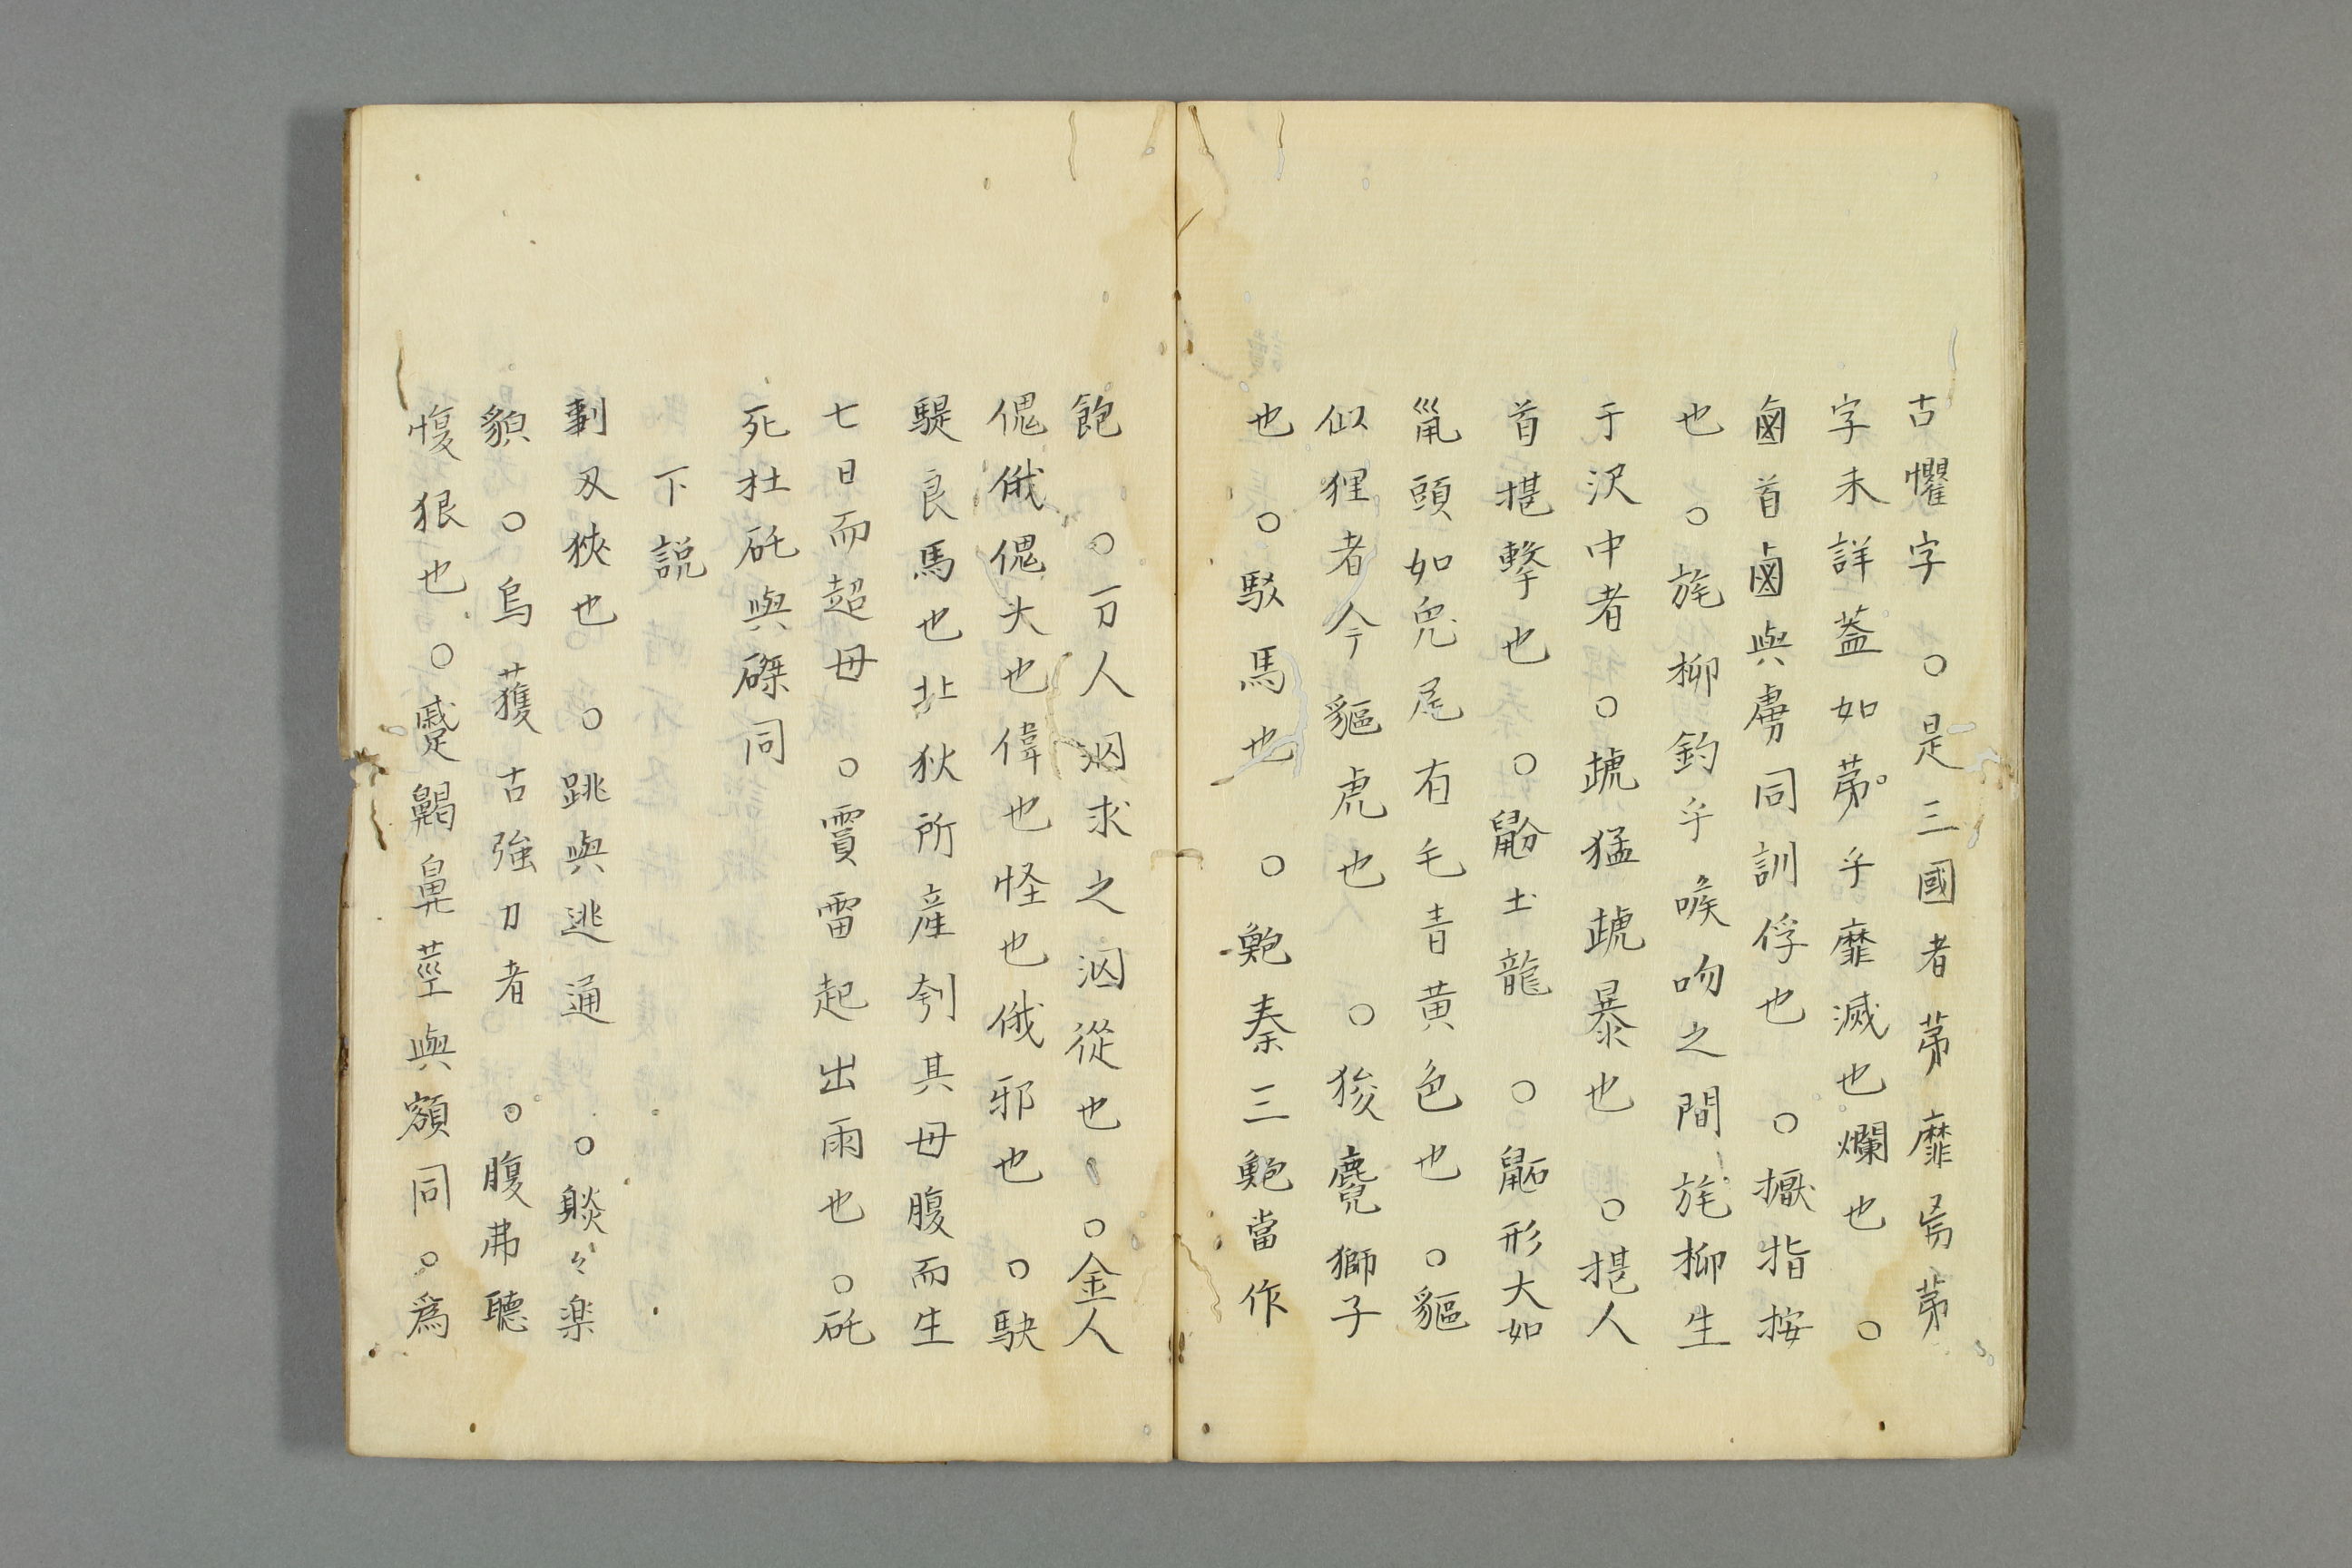 古懼字〇是三國者茀靡焉茀
字未詳蓋如茀乎靡滅也爛也〇
鹵首鹵與虜同訓俘也〇擫指按
也〇旄柳釣乎喉吻之間旄柳生
于沢中者〇猛暴也〇提人
首提撃也〇鼢土龍〇鼫形大如
鼠頭如兎尾有毛青黄色也〇貙
似狸者今貙虎也〇狻麑獅子
也〇駁馬也〇鮑秦三鮑當作
飽〇刀人泅求之泅從也〇金人
傀俄傀大也偉也怪也俄邪也〇駃
騠良馬也北狄所産刳其母腹而生
七日而超母〇霣雷起出雨也〇矺
死杜矺與磔同
下説
剚刄狹也〇跳與逃通〇睒々楽
貌〇烏獲古強力者〇腹弗聽
愎狠也〇蹙鼻莖與額同〇爲